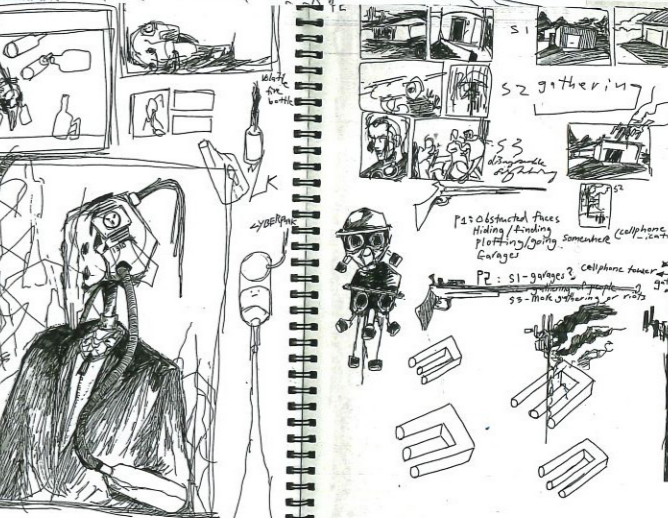 fire
bottle
K
S1
S2 gathering
S3
S2
P1: Obstructed faces
Hiding/finding
plotting/going somewhere (cellphone
Garages
P2: S1-garages? cellphone tower
gathering of people
S3-more gathering or riots